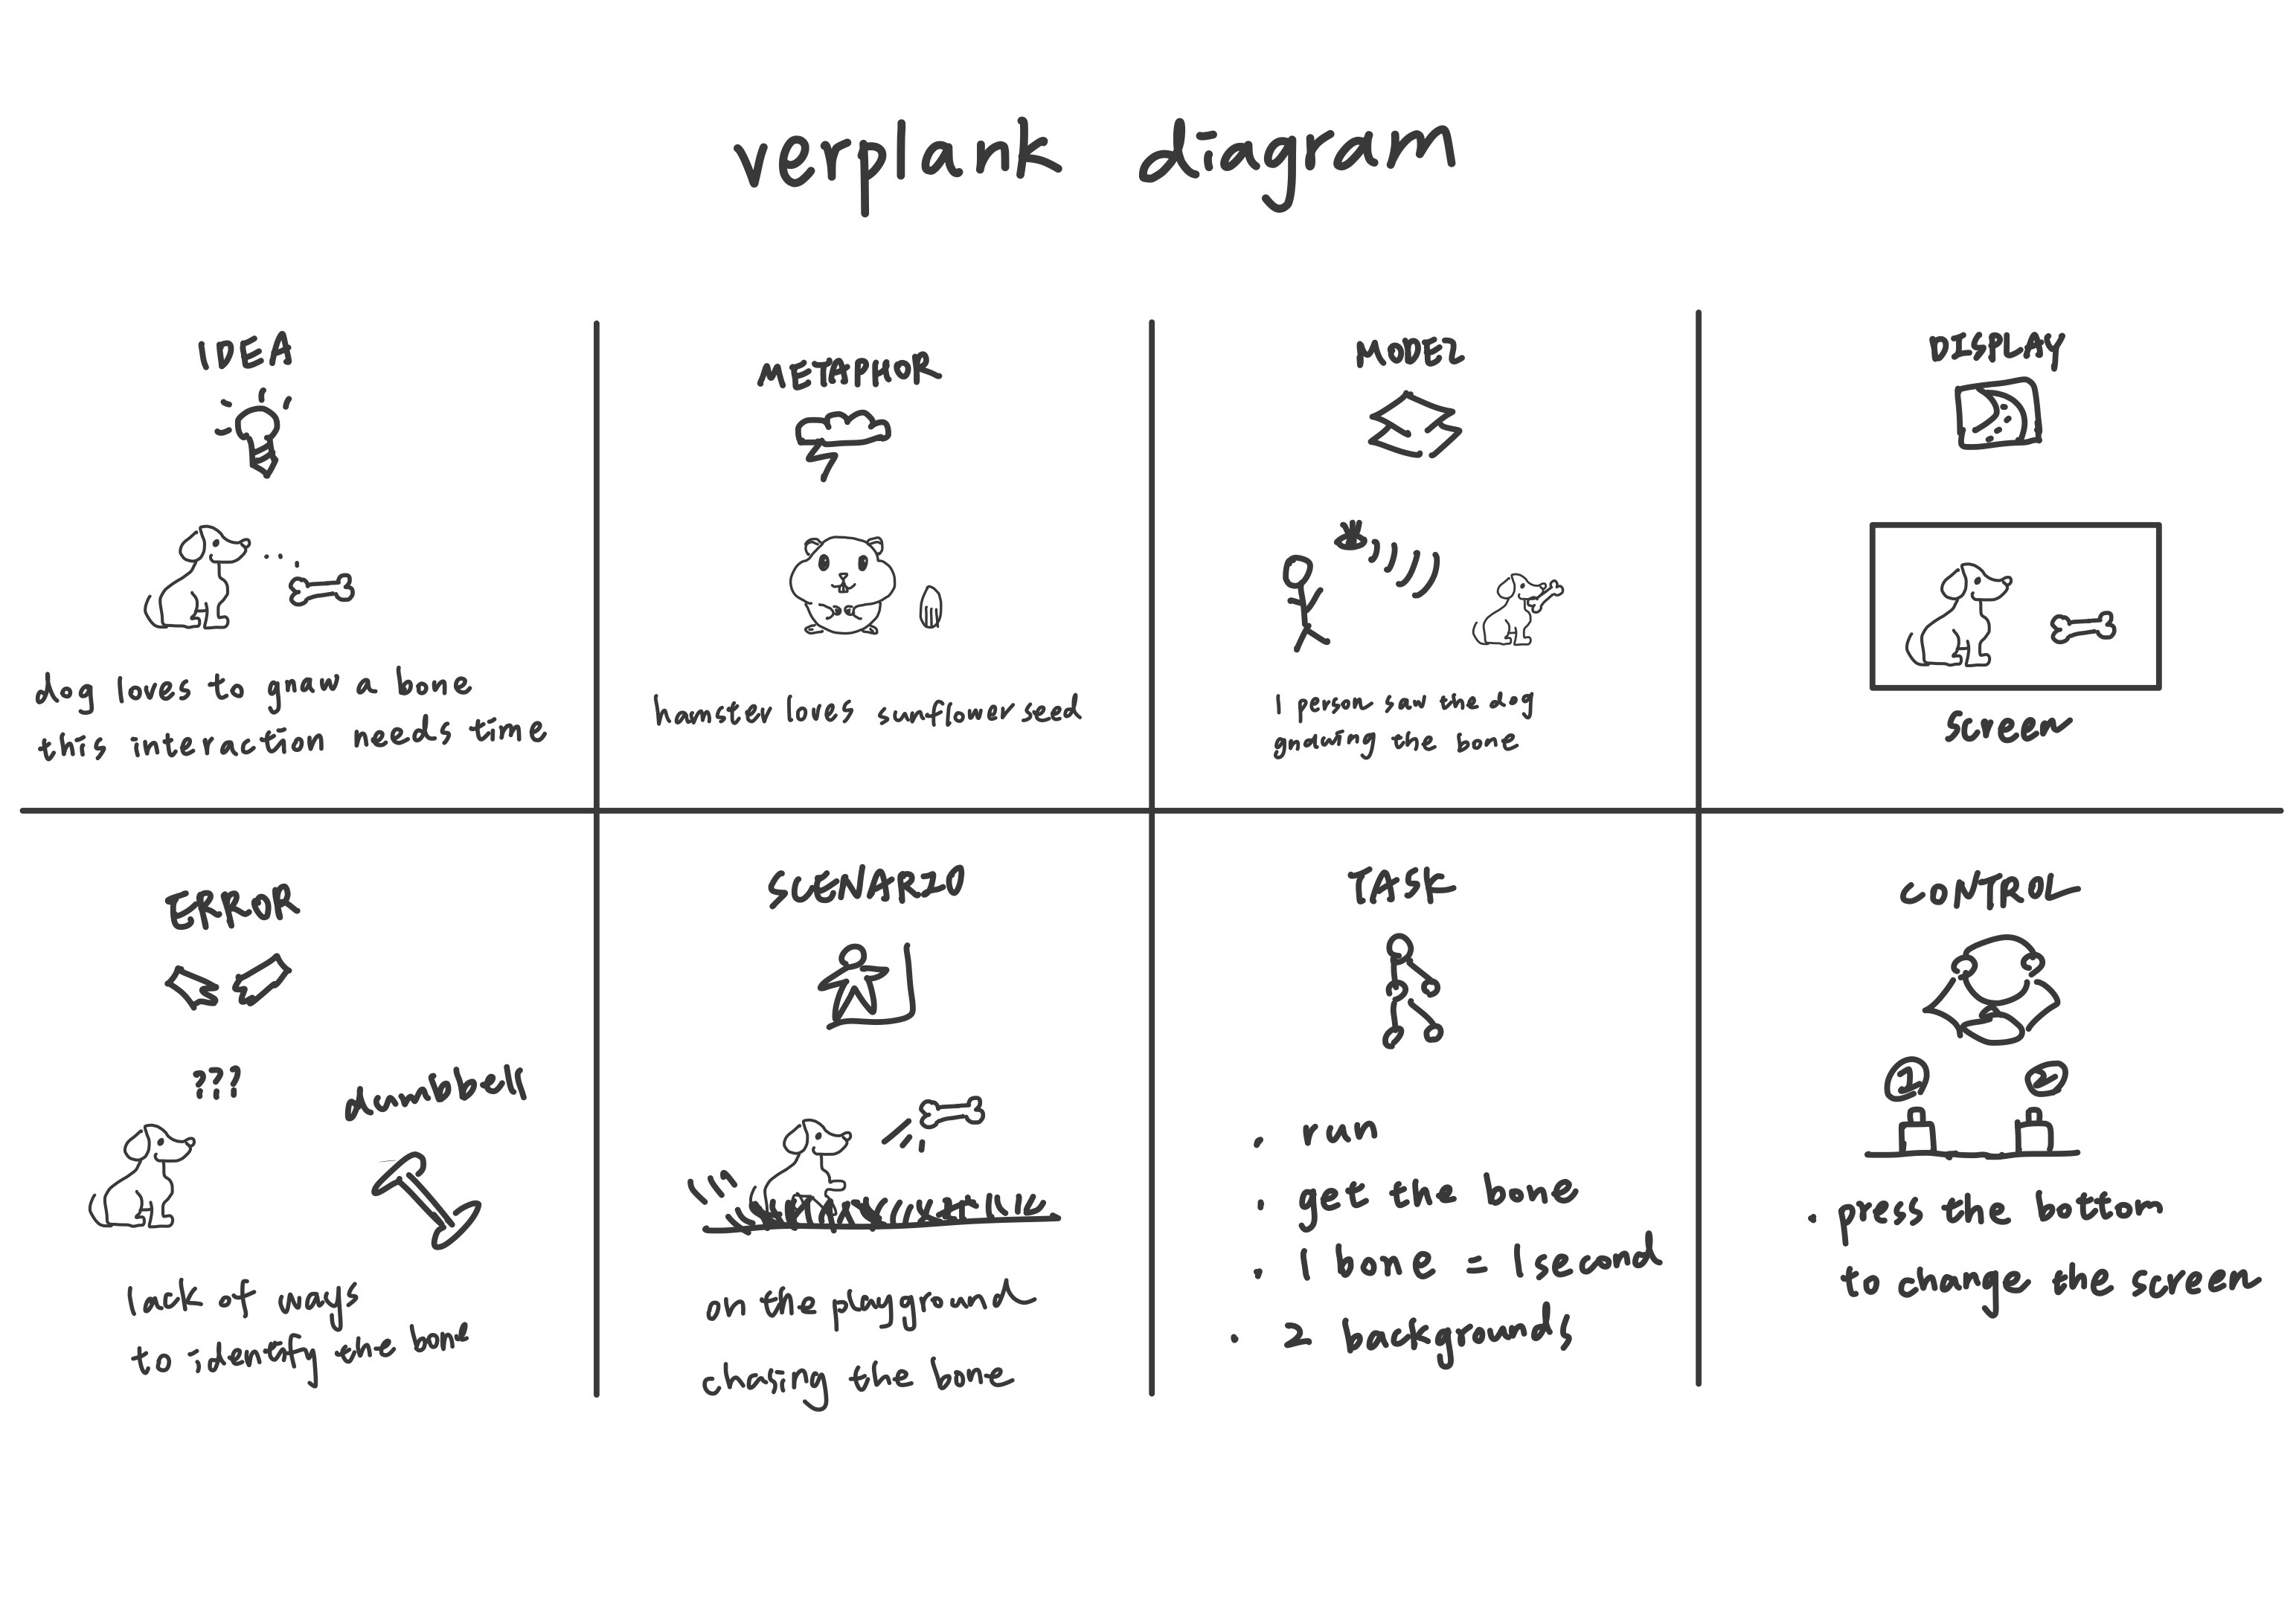 verplank diagram
IDEA
dog loves to gnaw a bone
this interaction needs time
METAPHOR
hamster loves sunflower seed
MODEL
1 person saw the dog
gnawing the bone
DISPLAY
screen
ERROR
???
dumbbell
lack of ways
to identify the bone
SCENARIO
on the playground
chasing the bone
TASK
· run
· get the bone
· 1 bone = 1 second
· 2 backgrounds
CONTROL
1 2
· press the bottom
to change the screen